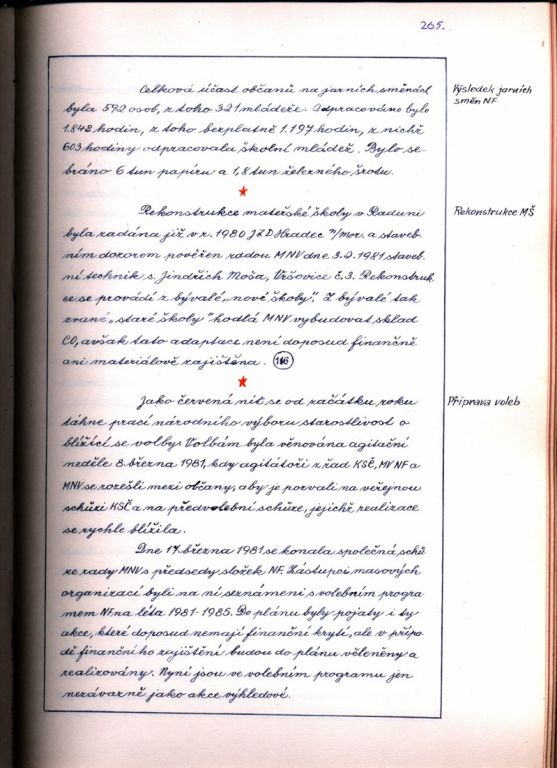 265.
Celková účast občanů na jarních směnách
byla 592 osob, z toho 321 mládeže. Odpracováno bylo
1.848 hodin, z toho bezplatně 1.197 hodin, z nichž
603 hodiny odpracovala školní mládež. Bylo se-
bráno 6 tun papíru a 1,8 tun železného šrotu.
Výsledek jarních
směn NF
Rekonstrukce mateřské školy v Raduni
byla zadána již v r. 1980 JZD Hradec n/Mor. a staveb-
ním dozorem pověřen radou MNV dne 3.2.1981 staveb-
ní technik s. Jindřich Moša, Vršovice č.3. Rekonstruk-
ce se provádí z bývalé „nové školy". Z bývalé tak
zvané „staré školy" hodlá MNV vybudovat sklad
CO, avšak tato adaptace není doposud finančně
ani materiálově zajištěna. 116
Rekonstrukce MŠ
Jako červená nit se od začátku roku
táhne prací národního výboru starostlivost o
blížící se volby. Volbám byla věnována agitační
neděle 8. března 1981, kdy agitátoři z řad KSČ, MV NF a
MNV se rozešli mezi občany, aby je pozvali na veřejnou
schůzi KSČ a na předvolební schůze, jejichž realizace
se rychle blížila.
Příprava voleb
Dne 17. března 1981 se konala společná schů-
ze rady MNV s předsedy složek NF. Zástupci masových
organizací byli na ní seznámeni s volebním progra-
mem NF na léta 1981-1985. Do plánu byly pojaty i ty
akce, které doposud nemají finanční krytí, ale v přípa-
dě finančního zajištění budou do plánu včleněny a
realizovány. Nyní jsou ve volebním programu jen
nezávazně jako akce výhledové.